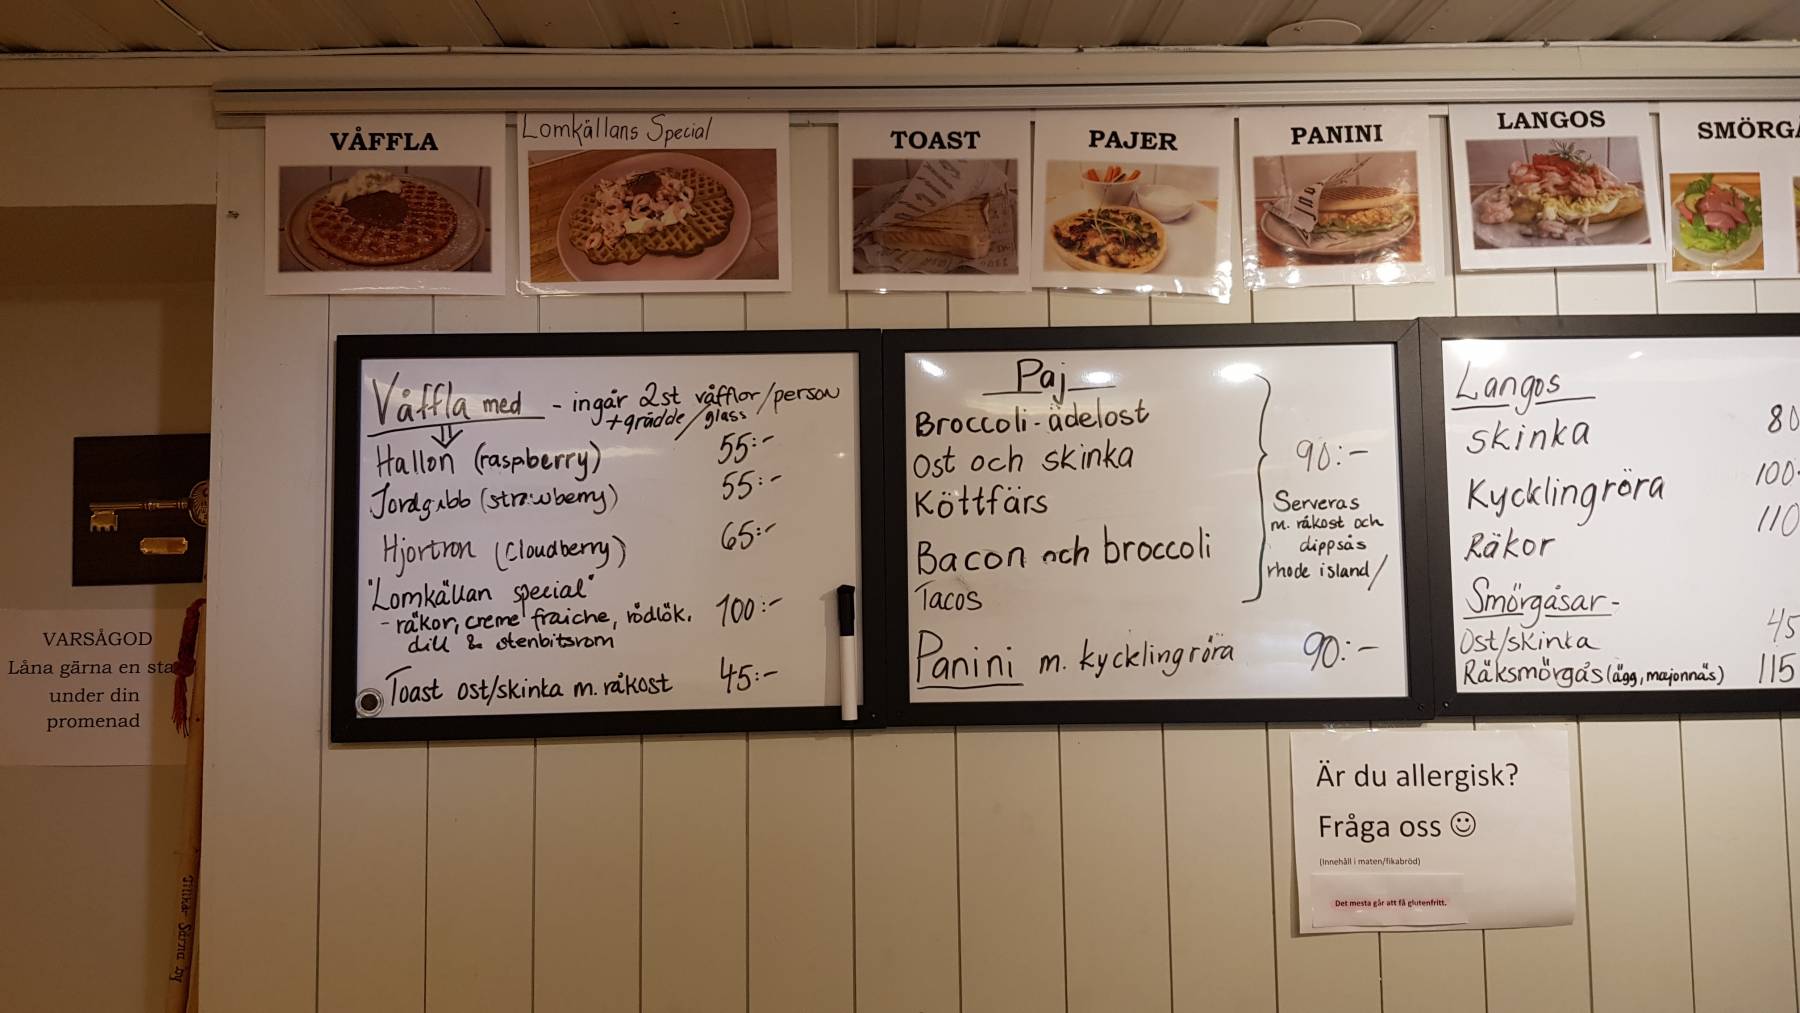 VÅFFLA
Lomkällans Special
TOAST
PAJER
PANINI
LANGOS
SMÖRGÅ
Våffla med - ingår 2st våfflor/person
+grädde/glass
Hallon (raspberry) 55:-
Jordgubb (strawberry) 55:-
Hjortron (Cloudberry) 65:-
"Lomkällan special"
- räkor, creme fraiche, rödlök, 100:-
dill & stenbitsrom
Toast ost/skinka m. råkost 45:-
Paj
Broccoli-ädelost
Ost och skinka
Köttfärs
Bacon och broccoli
Tacos
90:-
Serveras
m. råkost och
dippsås
rhode island/
Panini m. kycklingröra 90:-
Langos
Skinka 80
Kycklingröra 100
Räkor 110
Smörgåsar-
Ost/skinka 45
Räksmörgås (ägg, majonnäs) 115
VARSÅGOD
Låna gärna en sta
under din
promenad
Är du allergisk?
Fråga oss ☺
(Innehåll i maten/fikabröd)
Det mesta går att få glutenfritt.